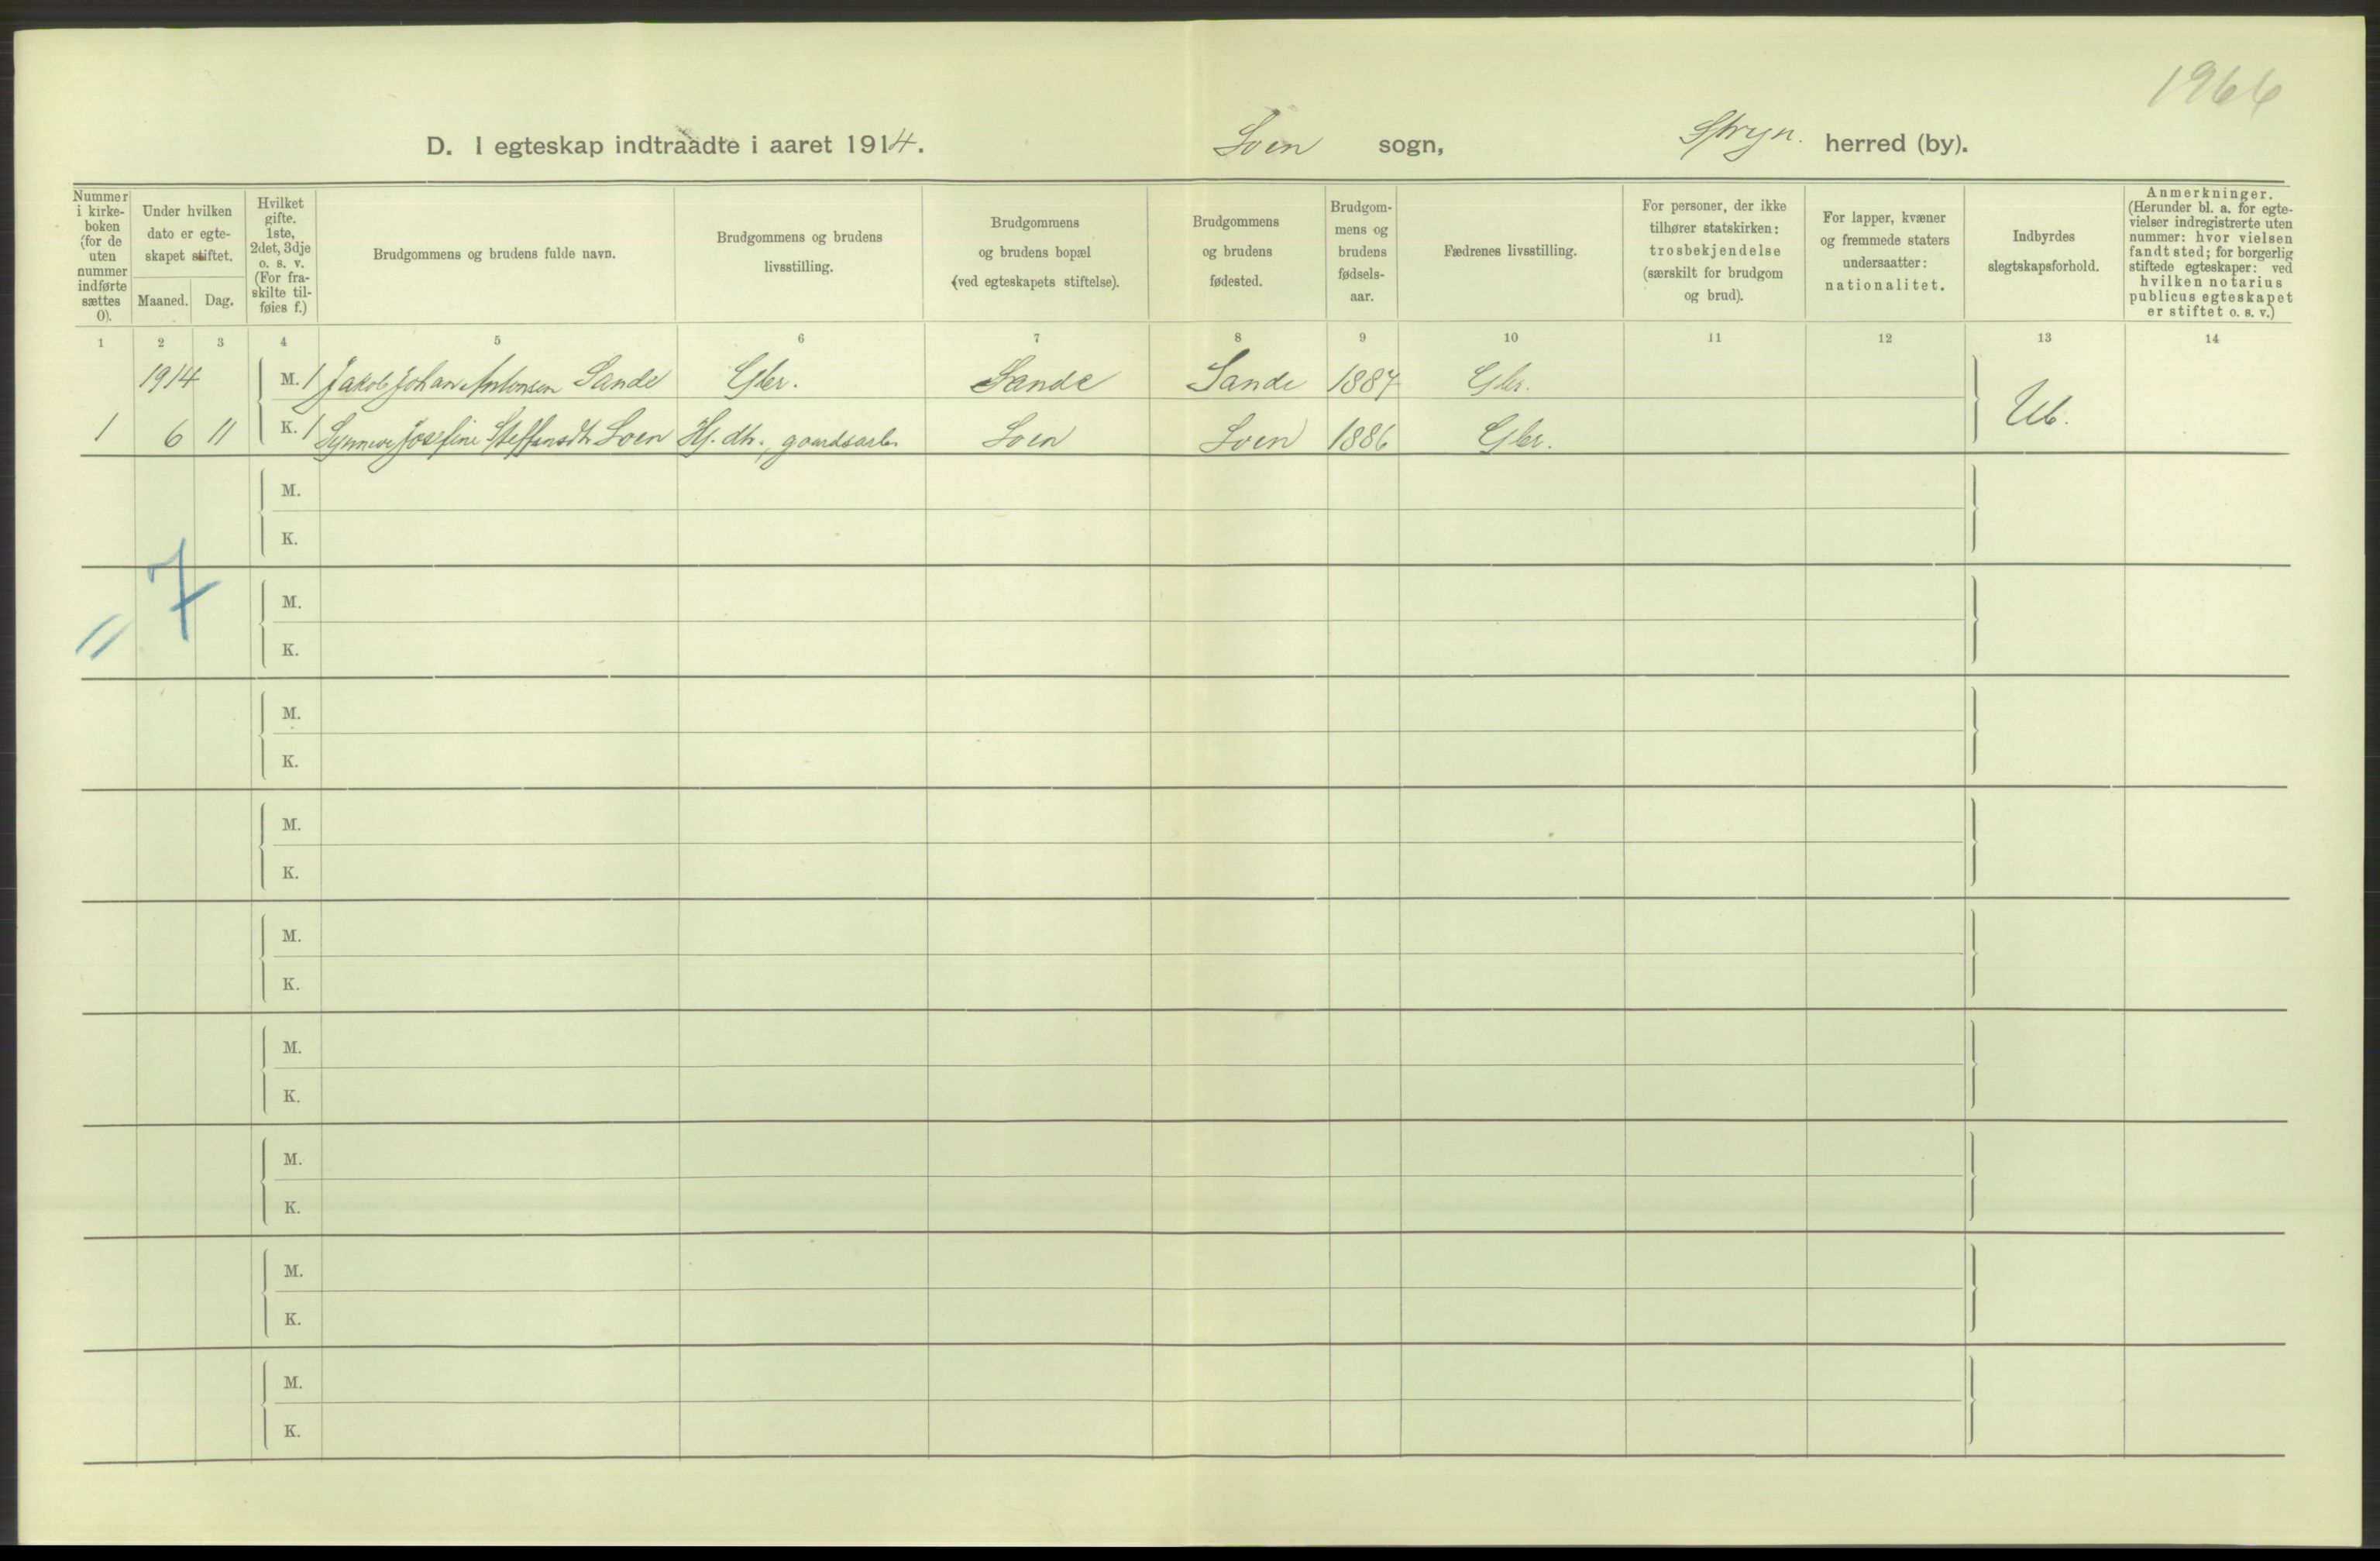 1966
D. I egteskap indtraadte i aaret 1914. Loen sogn, Stryn. herred (by).
Nummer i kirke- boken (for de uten nummer indførte sættes 0).
Under hvilken dato er egte- skapet stiftet.
Maaned. Dag.
Hvilket gifte. 1ste, 2det, 3dje o. s. v. (For fra- skilte til- føies f.)
Brudgommens og brudens fulde navn.
Brudgommens og brudens livsstilling.
Brudgommens og brudens bopæl (ved egteskapets stiftelse).
Brudgommens og brudens fødested.
Brudgom- mens og brudens fødsels- aar.
Fædrenes livsstilling.
For personer, der ikke tilhører statskirken: trosbekjendelse (særskilt for brudgom og brud).
For lapper, kvæner og fremmede staters undersaatter: nationalitet.
Indbyrdes slegtskapsforhold.
Anmerkninger. (Herunder bl. a. for egte- vielser indregistrerte uten nummer: hvor vielsen fandt sted; for borgerlig stiftede egteskaper: ved hvilken notarius publicus egteskapet er stiftet o. s. v.)
1 2 3 4 5 6 7 8 9 10 11 12 13 14
1914 M. 1 Jakob Johan Antonsen Sande Gbr. Sande Sande 1887 Gbr.
1 6 11 K. 1 Synneve Josefine Steffensdtr. Loen Hj. dtr., gaardsarb. Loen Loen 1886 Gbr. Ub.
M.
K.
7
M.
K.
M.
K.
M.
K.
M.
K.
M.
K.
M.
K.
M.
K.
M.
K.